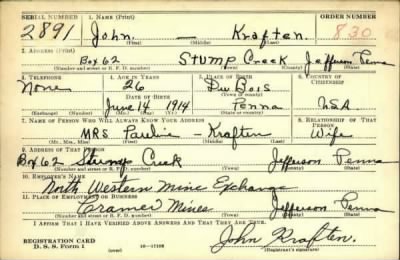 SERIAL NUMBER 1. NAME (Print) ORDER NUMBER
2891 John. — Kraften. 830
(First) (Middle) (Last)
2. ADDRESS (Print)
Box 62 Stump Creek Jefferson Penna
(Number and street or R. F. D. number) (Town) (County) (State)
3. TELEPHONE 4. AGE IN YEARS 5. PLACE OF BIRTH 6. COUNTRY OF CITIZENSHIP
None 26 Du Bois
DATE OF BIRTH (Town or county)
June 14 1914 Penna USA
(Exchange) (No.) (Mo.) (Day) (Yr.) (State or country)
7. NAME OF PERSON WHO WILL ALWAYS KNOW YOUR ADDRESS 8. RELATIONSHIP OF THAT PERSON
MRS Pauline — Kraften Wife
(Mr., Mrs., Miss) (First) (Middle) (Last)
9. ADDRESS OF THAT PERSON
Box 62 Stump Creek Jefferson Penna
(Number and street or R. F. D. number) (Town) (County) (State)
10. EMPLOYER'S NAME
North Western Mine Exchange
11. PLACE OF EMPLOYMENT OR BUSINESS
Cramer Mines Jefferson Penna
(Number and street or R. F. D. number) (Town) (County) (State)
I AFFIRM THAT I HAVE VERIFIED ABOVE ANSWERS AND THAT THEY ARE TRUE.
REGISTRATION CARD John Kraften.
D. S. S. Form 1 16—17105 (Registrant's signature)